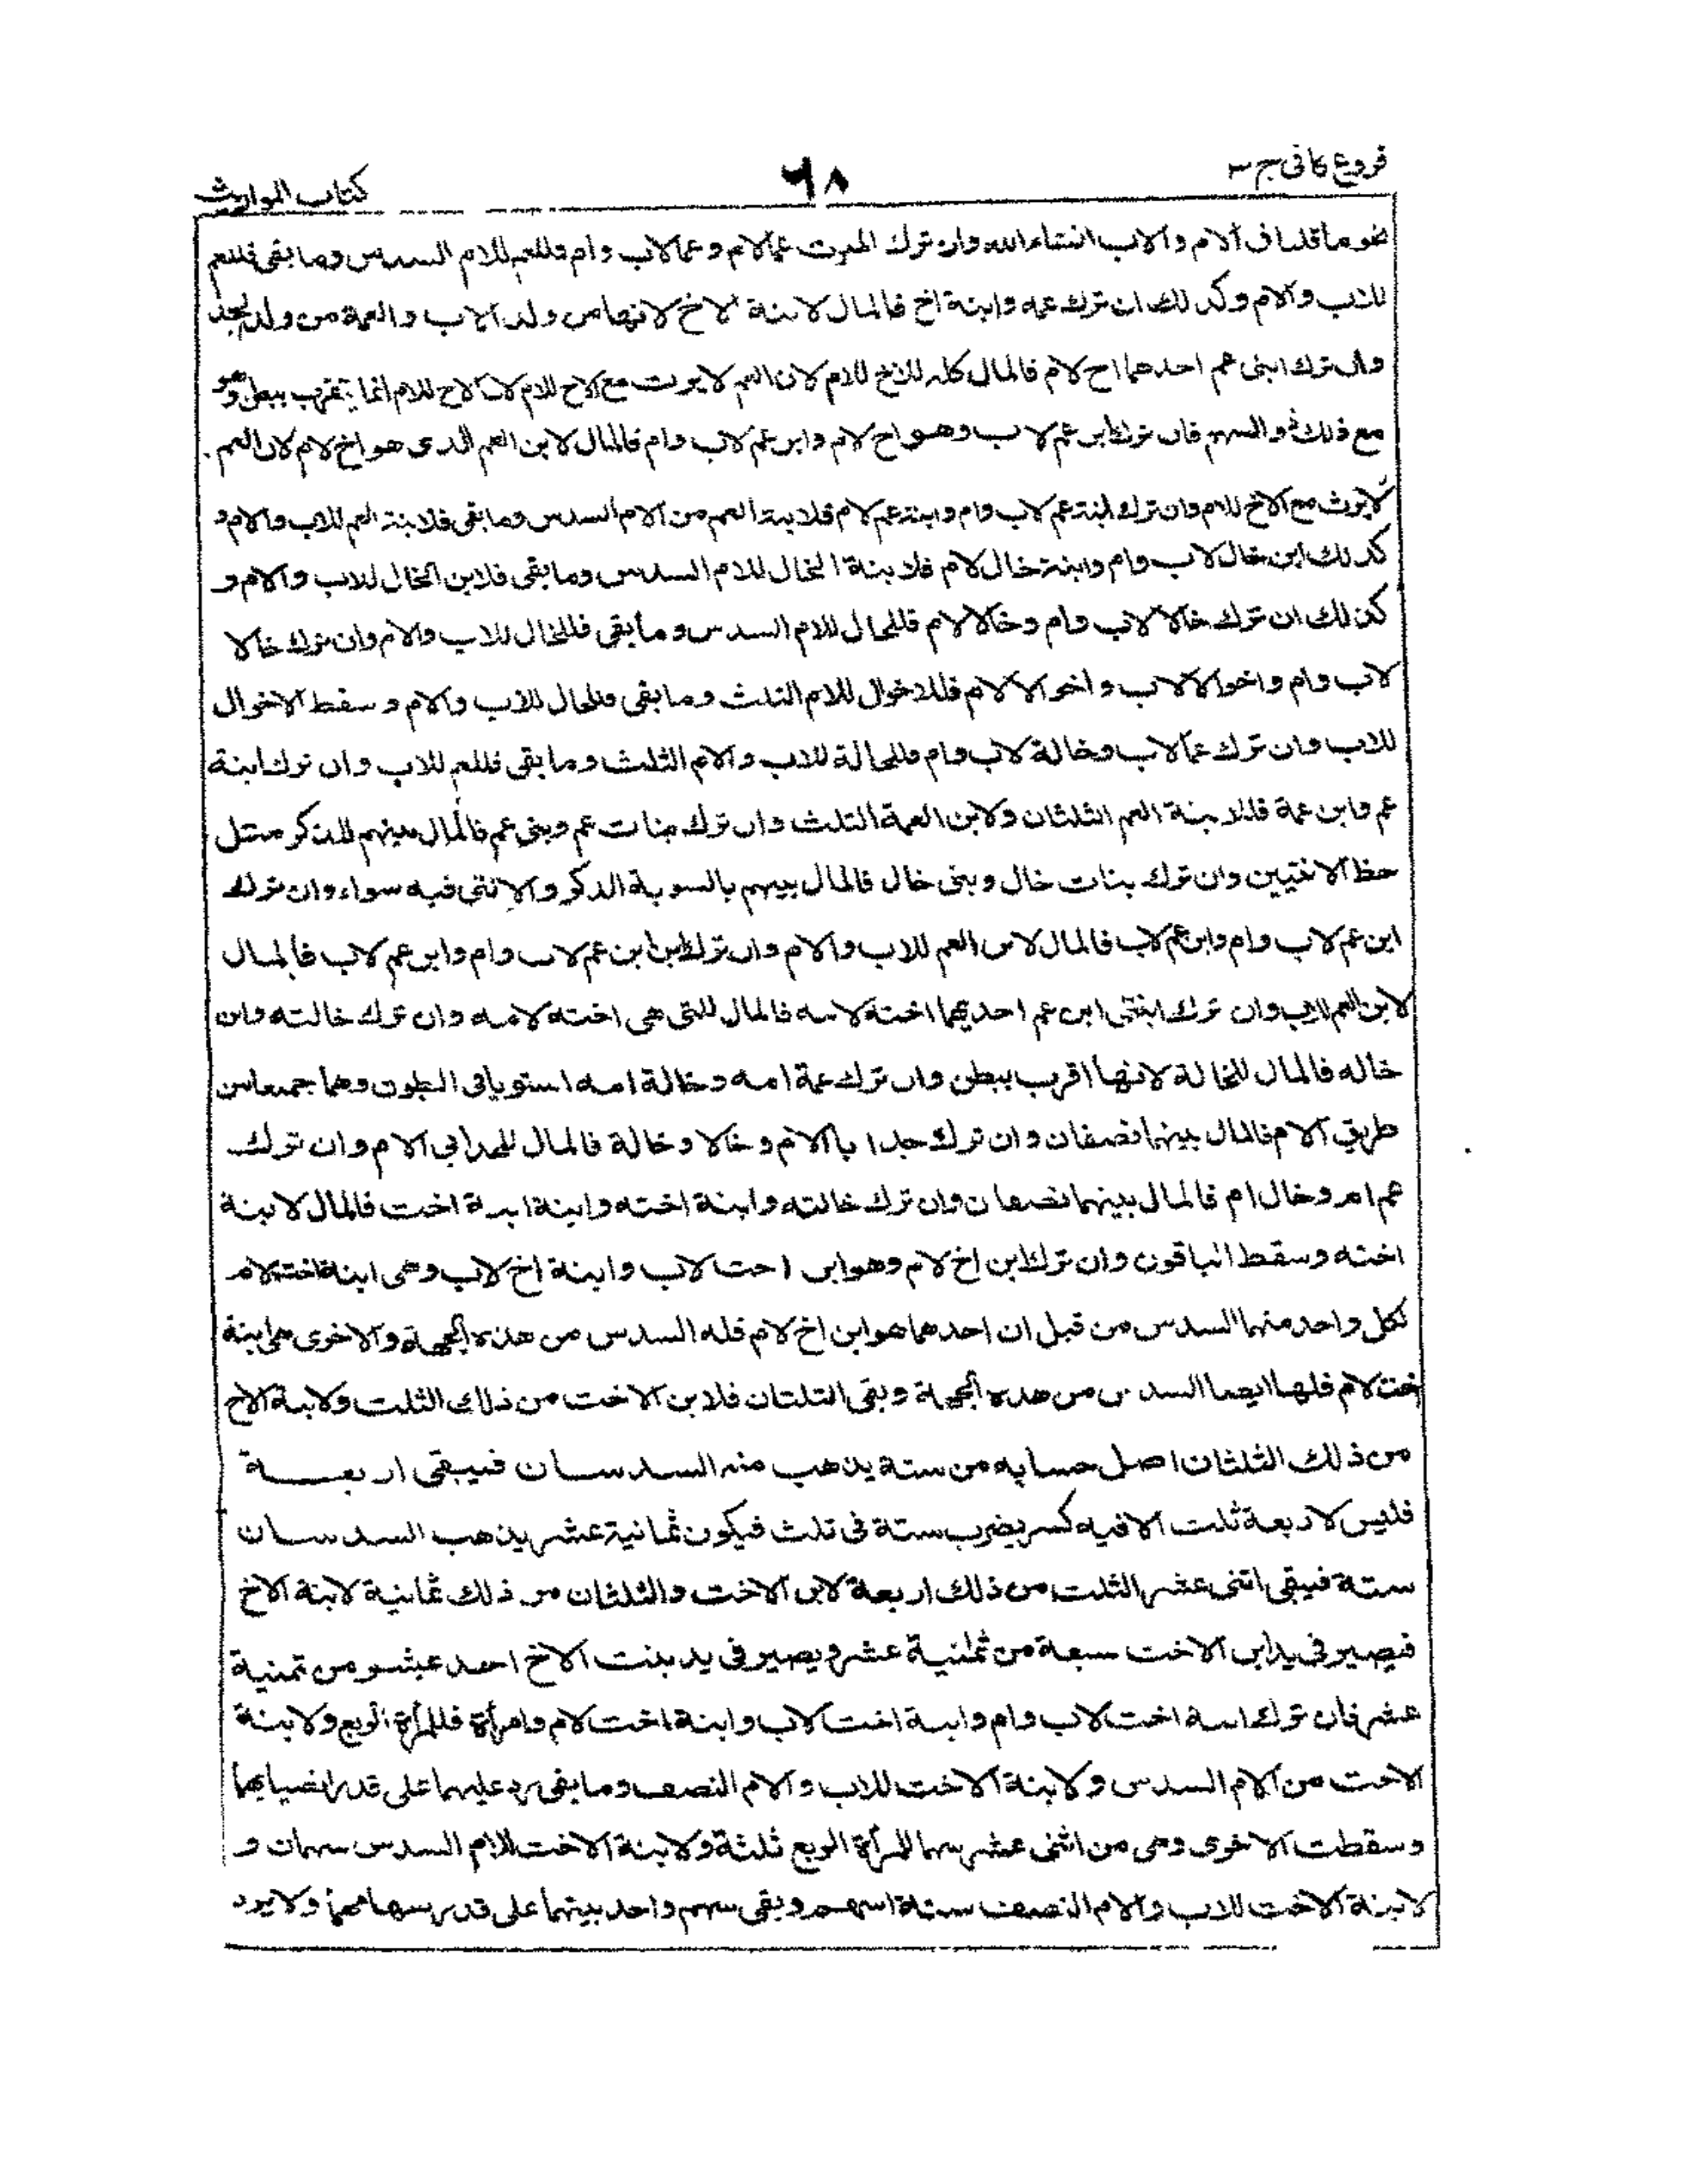 فروع كافى ج ٣
٦٨
كتاب المواريث
نحو ما قلنا فى الام والاب انشاء الله وان ترك الميت عما لام وعما لاب وام فللعم للام السدس وما بقى فللعم
للاب والام وكذلك ان ترك عمه وابنة اخ فالمال لابنة الاخ لانها من ولد الاب والعمة من ولد الجد
وان ترك ابنى عم احدهما اخ لام فالمال كله للاخ للام لان العم لا يرث مع الاخ للام لان الاخ للام انما يتقرب ببطن وهو
مع ذلك ذو السهم فان ترك ابن عم لاب وهو اخ لام وابن عم لاب وام فالمال لابن العم الذى هو اخ لام لان العم
لا يرث مع الاخ للام وان ترك ابنة عم لاب وام وابنة عم لام فلابنة العم من الام السدس وما بقى فلابنة العم للاب والام و
كذلك ابن خال لاب وام وابنة خال لام فلابنة الخال للام السدس وما بقى فلابن الخال للاب والام و
كذلك ان ترك خالا لاب وام وخالا لام فللخال للام السدس وما بقى فللخال للاب والام وان ترك خالا
لاب وام واخوالا لاب واخوالا لام فللاخوال للام الثلث وما بقى فللخال للاب والام وسقط الاخوال
للاب وان ترك عما لاب وخالة لاب وام فللخالة للاب والام الثلث وما بقى فللعم للاب وان ترك ابنة
عم وابن عمة فللابنة العم الثلثان ولابن العمة الثلث وان ترك بنات عم وبنى عم فالمال بينهم للذكر مثل
حظ الانثيين وان ترك بنات خال وبنى خال فالمال بينهم بالسوية الذكر والانثى فيه سواء وان ترك
ابن عم لاب وام وابن عم لاب فالمال لابن العم للاب والام وان ترك ابن ابن عم لاب وام وابن عم لاب فالمال
لابن العم للاب وان ترك ابنتى ابن عم احديهما اخته لامه فالمال للتى هى اخته لامه وان ترك خالته وابن
خاله فالمال للخالة لانها اقرب ببطن وان ترك عمة امه وخالة امه استويا فى البطون وهما جميعا من
طريق الام فالمال بينهما نصفان وان ترك جدا ابا الام وخالا وخالة فالمال للجد ابى الام وان ترك
عم ام وخال ام فالمال بينهما نصفان وان ترك خالته وابنة اخته وابنة ابنة اخت فالمال لابنة
اخته وسقط الباقون وان ترك ابن اخ لام وهو ابن اخت لاب وابنة اخ لاب وهى ابنة اخت لام
لكل واحد منهما السدس من قبل ان احدهما هو ابن اخ لام فله السدس من هذه الجهة والاخرى هى ابنة
اخت لام فلها ايضا السدس من هذه الجهة وبقى الثلثان فلابن الاخت من ذلك الثلث ولابنة الاخ
من ذلك الثلثان اصل حسابه من ستة يذهب منه السدسان فيبقى اربعة
فليس لاربعة ثلث الا فيه كسر يضرب ستة فى ثلث فيكون ثمانية عشر يذهب السدسان
ستة فيبقى اثنى عشر الثلث من ذلك اربعة لابن الاخت والثلثان من ذلك ثمانية لابنة الاخ
فيصير فى يد ابن الاخت سبعة من ثمانية عشر ويصير فى يد بنت الاخ احد عشر من ثمنية
عشر فان ترك ابنة اخت لاب وام وابنة اخت لاب وابنة اخت لام وامرأة فللمرأة الربع ولابنة
الاخت من الام السدس ولابنة الاخت للاب والام النصف وما بقى يرد عليهما على قدر انصبائهما
وسقطت الاخرى وهى من اثنى عشر سهما للمرأة الربع ثلثة ولابنة الاخت للام السدس سهمان و
لابنة الاخت للاب والام النصف ستة اسهم وبقى سهم واحد بينهما على قدر سهامهما ولا يرد